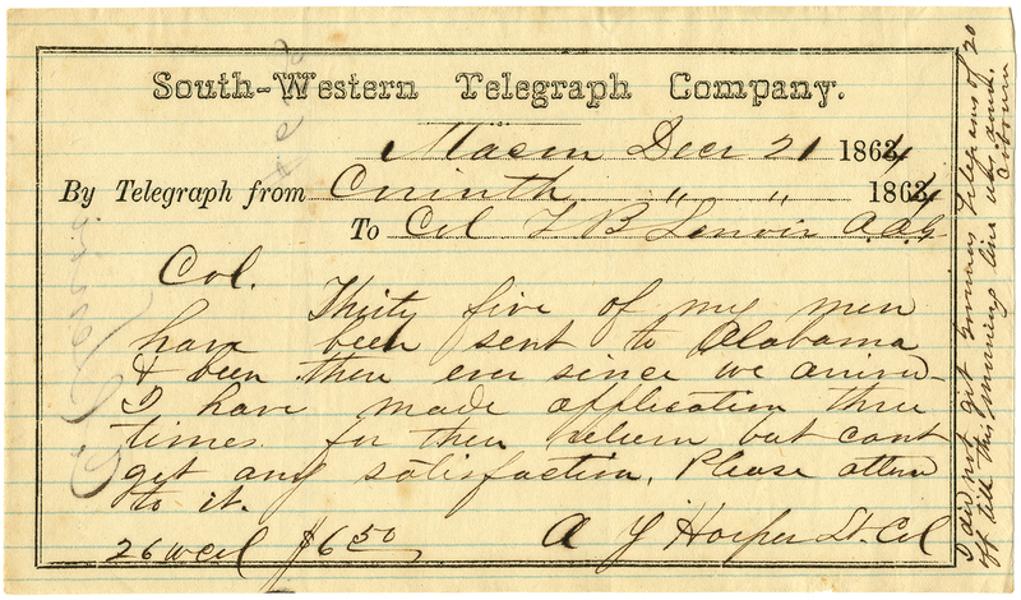 South-Western Telegraph Company.
Macon Decr 21 1864
By Telegraph from Corinth " " 1864
To Col T B Lenoir A.A.G
Col.
Thirty five of my men
have been sent to Alabama
& been there ever since we arrived
I have made application three
times for their return but cant
get any satisfaction. Please attend
to it.
26 wcol $6 50 A Y Harper Lt. Col
I did not get Simmons telegrams of 20
off till this morning line was down.
Coborn